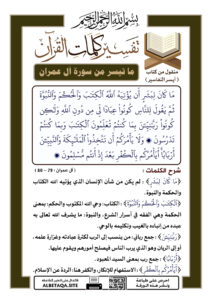 بسم الله الرحمن الرحيم
تفسير كلمات القرآن
ما تيسر من سورة آل عمران
منقول من كتاب
( أيسر التفاسير )
مَا كَانَ لِبَشَرٍ أَن يُؤْتِيَهُ اللَّهُ الْكِتَابَ وَالْحُكْمَ وَالنُّبُوَّةَ
ثُمَّ يَقُولَ لِلنَّاسِ كُونُوا عِبَادًا لِّي مِن دُونِ اللَّهِ وَلَٰكِن
كُونُوا رَبَّانِيِّينَ بِمَا كُنتُمْ تُعَلِّمُونَ الْكِتَابَ وَبِمَا كُنتُمْ
تَدْرُسُونَ ۝ وَلَا يَأْمُرَكُمْ أَن تَتَّخِذُوا الْمَلَائِكَةَ وَالنَّبِيِّينَ
أَرْبَابًا أَيَأْمُرُكُم بِالْكُفْرِ بَعْدَ إِذْ أَنتُم مُّسْلِمُونَ ۝
شرح الكلمات : ( آل عمران : 79 - 80 )
(مَا كَانَ لِبَشَرٍ) : لم يكن من شأن الإنسان الذي يؤتيه الله الكتاب
والحكمة والنبوة.
: الكتاب: وحي الله المكتوب والحكم: بمعنى
الحكمة وهي الفقه في أسرار الشرع، والنبوة: ما يشرف الله تعالى به
عبده من إنبائه بالغيب وتكليمه بالوحي.
(رَبَّانِيِّينَ) : جمع رباني: من ينسب إلى الرب لكثرة عبادته وغزارة علمه،
أو إلى الربان وهو الذي يرب الناس فيصلح أمورهم ويقوم عليها.
(أَرْبَابًا) : جمع رب بمعنى السيد المعبود.
(أَيَأْمُرُكُم بِالْكُفْرِ) : الاستفهام للإنكار، والكفر هنا: الردة عن الإسلام.
ALBETAQA.SITE